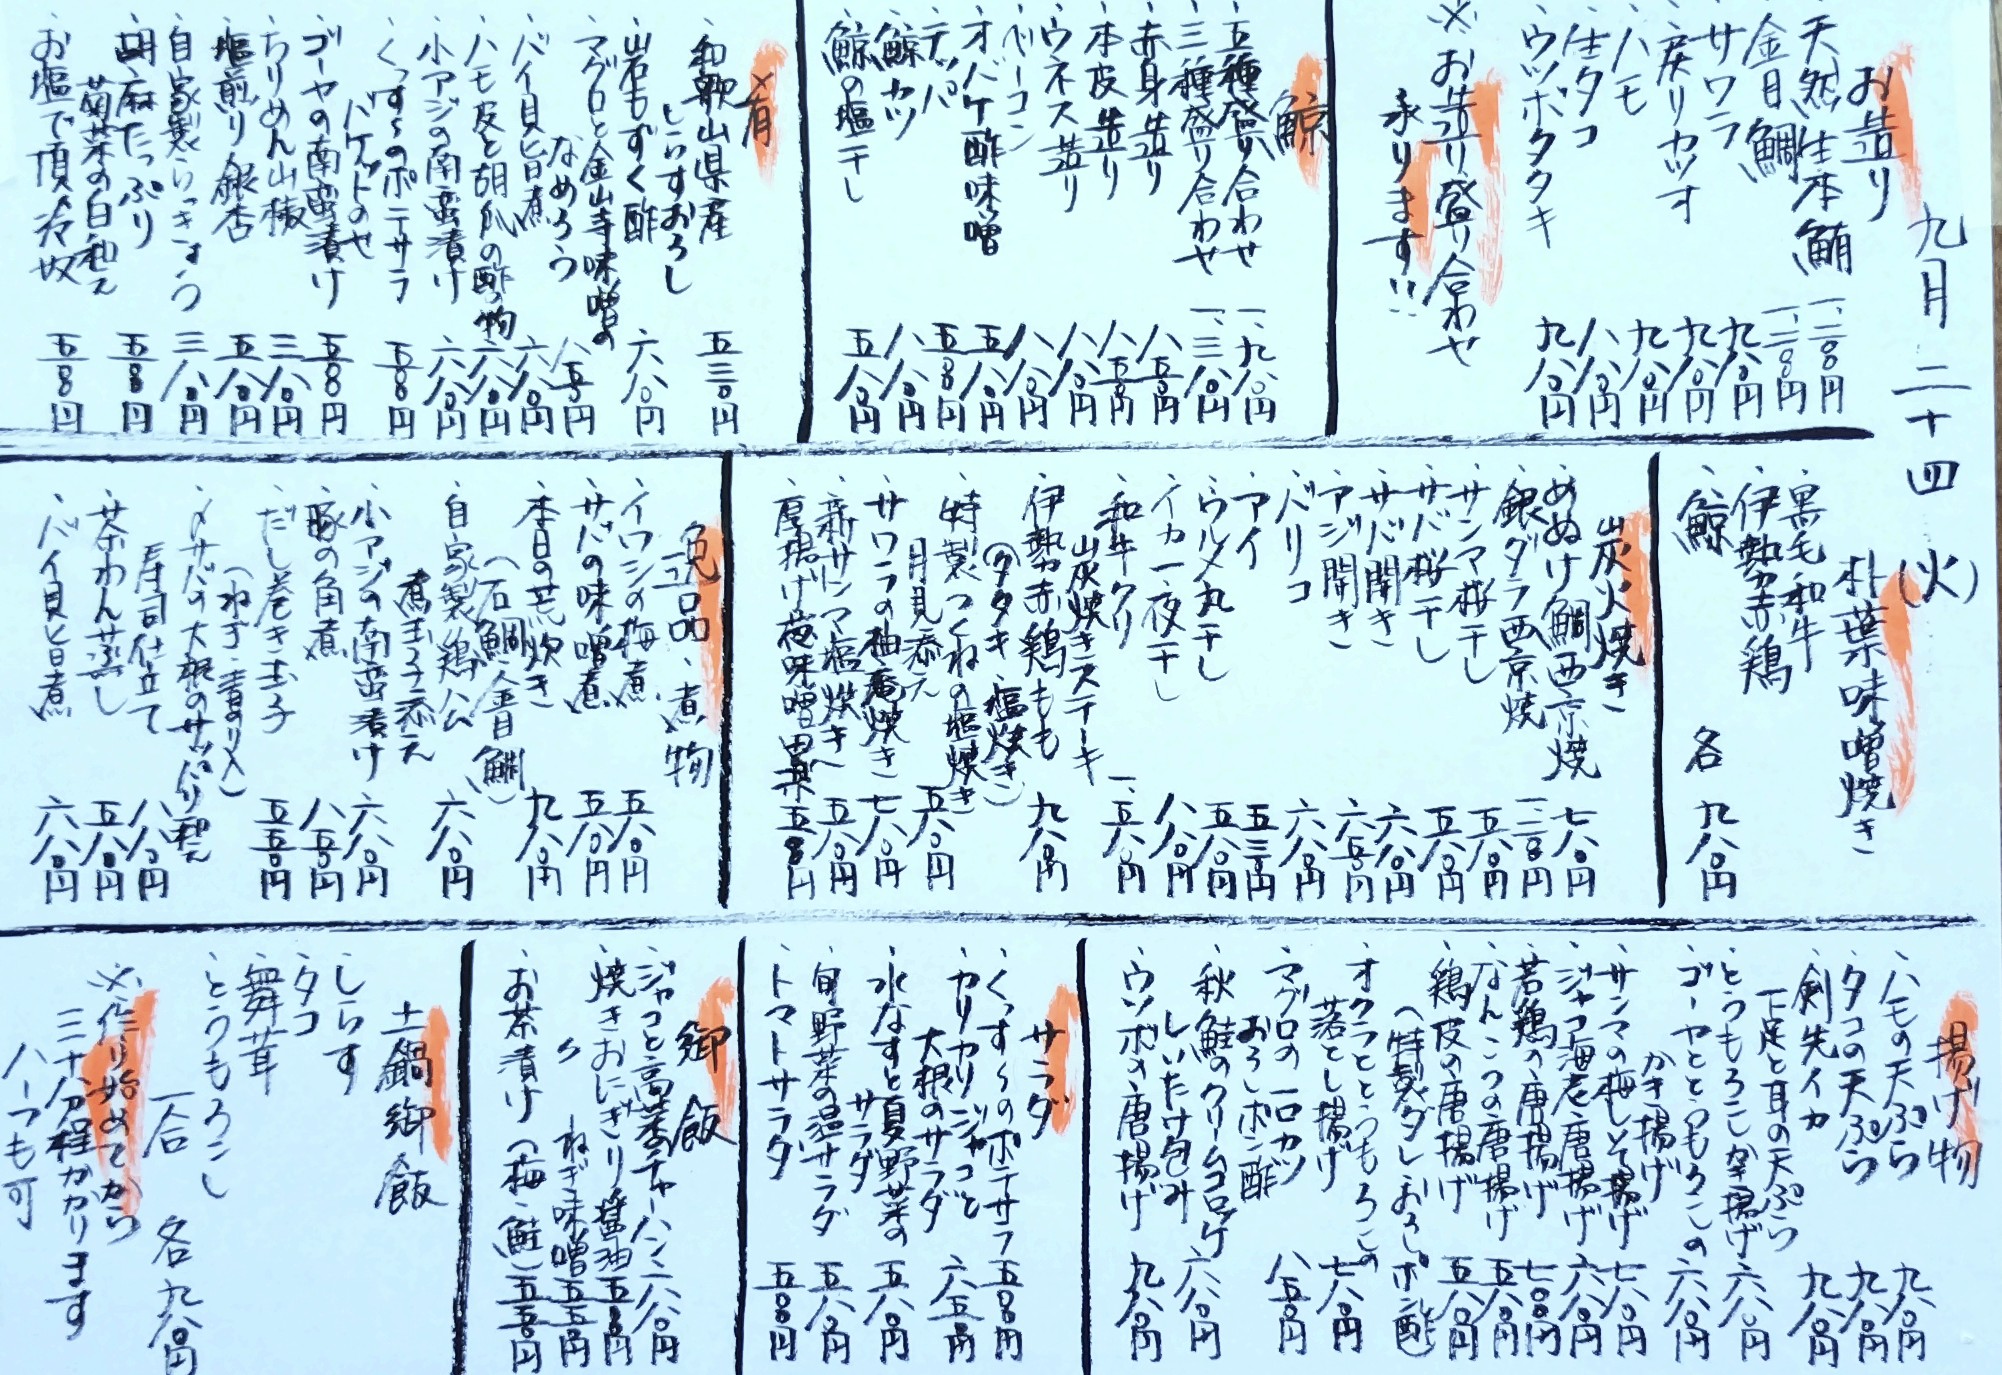 九月二十四(火)
お造り
・天然生本鮪 一、二〇〇円
・金目鯛 一、二〇〇円
・サワラ 九八〇円
・戻りカツオ 九八〇円
・ハモ 九八〇円
・生タコ 八八〇円
・ウツボタタキ 九八〇円
※お造り盛り合わせ
承ります!!
鯨
・五種盛り合わせ 一、九八〇円
・三種盛り合わせ 一、三八〇円
・赤身造り 八五〇円
・本皮造り 八五〇円
・ウネス造り 八八〇円
・ベーコン 八八〇円
・オバケ酢味噌 五八〇円
・テッパ 五五〇円
・鯨カツ 八八〇円
・鯨の塩干し 五八〇円
×有
・和歌山県産
しらすおろし 五三〇円
・岩もずく酢 六八〇円
・マグロと金山寺味噌の
なめろう 八五〇円
・バイ貝旨煮 六八〇円
・ハモ皮と胡瓜の酢の物 六八〇円
・小アジの南蛮漬け 六八〇円
・くっすぅのポテサラ
バケットのせ 五五〇円
・ゴーヤの南蛮漬け 五五〇円
・ちりめん山椒 三八〇円
・塩煎り銀杏 五八〇円
・自家製らっきょう 三八〇円
・胡麻たっぷり
菊菜の白和え 五五〇円
・お塩で頂く冷奴 五五〇円
朴葉味噌焼き
・黒毛和牛
・伊勢赤鶏
・鯨 各 九八〇円
炭火焼き
・めぬけ鯛西京焼 七八〇円
・銀ダラ西京焼 一、二〇〇円
・サンマ桜干し 五八〇円
・サバ桜干し 五八〇円
・サバ開き 六八〇円
・アジ開き 六五〇円
・バリコ 六八〇円
・アイ 五三〇円
・ウルメ丸干し 五八〇円
・イカ一夜干し 八八〇円
・和牛クリ
炭焼きステーキ 一、五八〇円
・伊勢赤鶏もも
(タタキ・塩焼き) 九八〇円
・特製つくねの塩焼き
月見添え 五八〇円
・サワラの柚庵焼き 七八〇円
・新サンマ塩焼き 五八〇円
・厚揚げ葱味噌田楽 五五〇円
逸品、煮物
・イワシの梅煮 五八〇円
・サバの味噌煮 五八〇円
・本日の荒炊き
(石鯛・金目鯛) 九八〇円
・自家製鶏ハム
煮玉子添え 六八〇円
・小アジの南蛮漬け 六八〇円
・豚の角煮 八五〇円
・だし巻き玉子
(ねぎ・青のり入) 五五〇円
・〆サバの大根のサッパリ和え
寿司仕立て 八八〇円
・茶わん蒸し 五八〇円
・バイ貝旨煮 六八〇円
揚げ物
・ハモの天ぷら 九八〇円
・タコの天ぷら 九八〇円
・剣先イカ
下足と耳の天ぷら 九八〇円
・とうもろこしかき揚げ 六八〇円
・ゴーヤととうもろこしの
かき揚げ 六八〇円
・サンマの梅しそ揚げ 七八〇円
・ジャコ海老唐揚げ 六八〇円
・若鶏の唐揚げ 七〇〇円
・なんこつの唐揚げ 五八〇円
・鶏皮の唐揚げ 五八〇円
(特製ダレ・おろしポン酢)
・オクラととうもろこしの
落とし揚げ 七八〇円
・マグロの一口カツ
おろしポン酢 八五〇円
・秋鮭のクリームコロッケ
しいたけ包み 六八〇円
・ウツボの唐揚げ 九八〇円
サラダ
・くっすぅのポテサラ 五五〇円
・カリカリジャコと
大根のサラダ 六五〇円
・水なすと夏野菜の
サラダ 五八〇円
・旬野菜の温サラダ 五八〇円
・トマトサラダ 五五〇円
御飯
・ジャコと高菜チャーハン 六八〇円
・焼きおにぎり醤油 五五〇円
〃 ねぎ味噌 五五〇円
・お茶漬け(梅・鮭) 五五〇円
土鍋御飯
・しらす
・タコ
・舞茸
・とうもろこし
一合 各九八〇円
※作り始めてから
三十分程かかります
ハーフも可